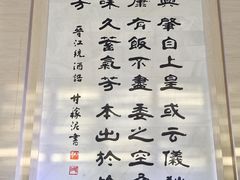 興肇自上皇或云儀狄
康有飯不盡委之空桑
味久蓄氣芳本出於
方
晉江統酒誥 甘稼泥書